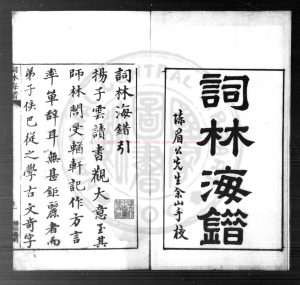 詞林海錯
陳眉公先生余山手校
詞林海錯引
揚子雲讀書觀大意至其
師林閭受輶軒記作方言
率簞辭耳無甚鉅麗者而
弟子侯芭從之學古文奇字